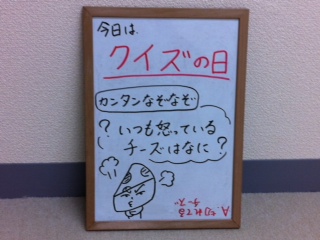 今日は、
クイズの日
カンタンなぞなぞ
? いつも怒っている
チーズはなに?
A. 切れてる
チーズ